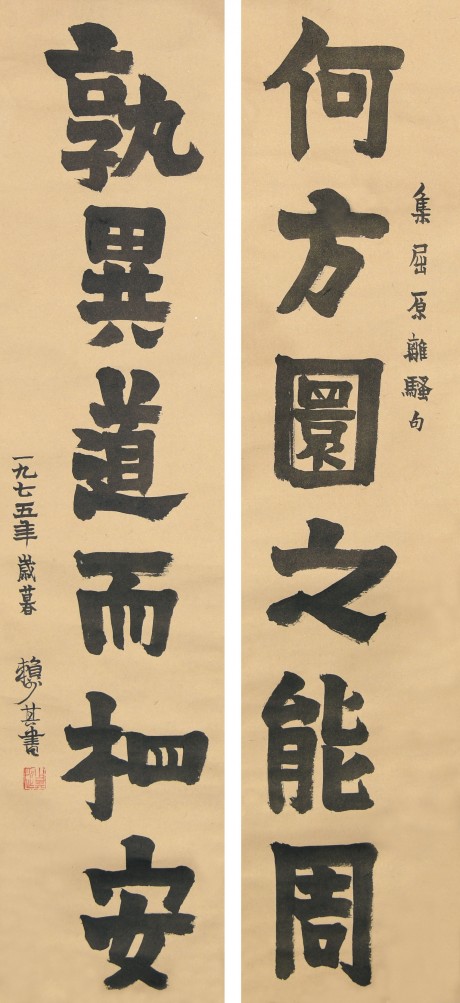 集屈原離騷句
何方圜之能周
孰異道而相安
一九七五年歲暮
賴少其書